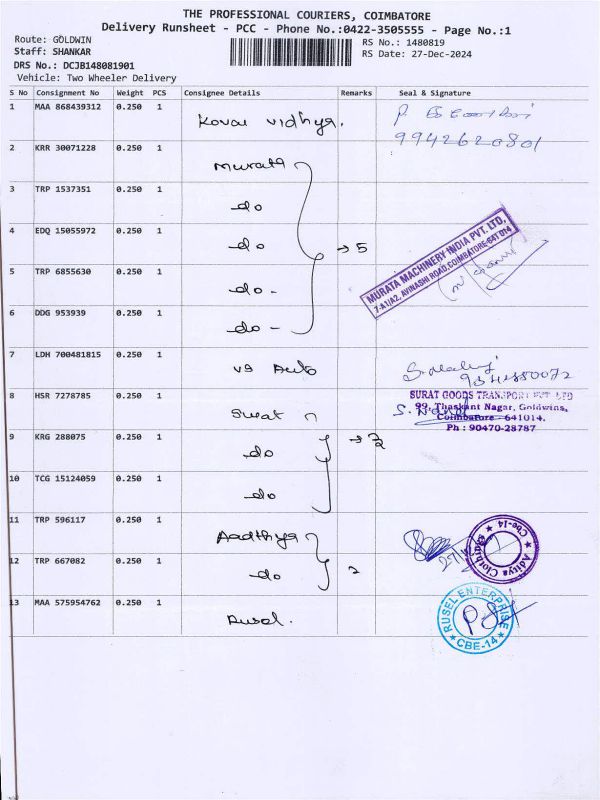 THE PROFESSIONAL COURIERS, COIMBATORE
Delivery Runsheet - PCC - Phone No.:0422-3505555 - Page No.:1
Route: GOLDWIN
RS No.: 1480819
Staff: SHANKAR
RS Date: 27-Dec-2024
DRS No.: DCJB148081901
Vehicle: Two Wheeler Delivery
S No Consignment No Weight PCS Consignee Details Remarks Seal & Signature
1 MAA 868439312 0.250 1 Kovai Vidhya.
9942620801
2 KRR 30071228 0.250 1 Murata
3 TRP 1537351 0.250 1 do
4 EDQ 15055972 0.250 1 do → 5
MURATA MACHINERY INDIA PVT. LTD,
7-A1/A2, AVINASHI ROAD, COIMBATORE-641 014
5 TRP 6855630 0.250 1 do -
6 DDG 953939 0.250 1 do -
7 LDH 700481815 0.250 1 VS Auto
8 HSR 7278785 0.250 1 Surat
SURAT GOODS TRANSPORT PVT LTD
99, Thaskant Nagar, Goldwins,
Coimbatore - 641014.
Ph : 90470-28787
9 KRG 288075 0.250 1 do → 3
10 TCG 15124059 0.250 1 do
11 TRP 596117 0.250 1 Aadthya
12 TRP 667082 0.250 1 do 2
Aditya Cbe-14
13 MAA 575954762 0.250 1 Rusel.
RUSEL ENTERPRISE
CBE-14